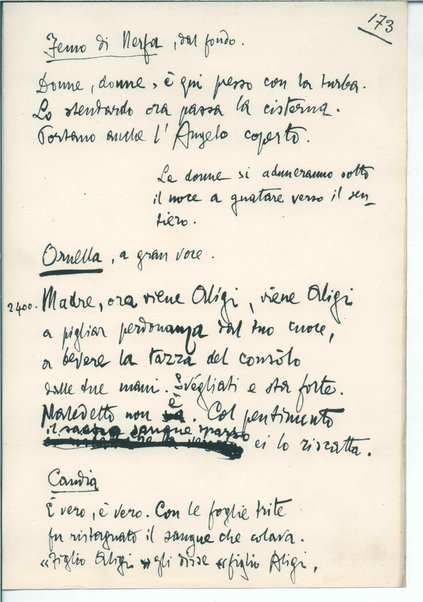 173
Femo di Nerfa, dal fondo.
Donne, donne, è qui presso con la turba.
Lo stendardo ora passa la cisterna.
Portano anche l'Angelo coperto.
Le donne si aduneranno sotto
il noce a guatare verso il sen-
tiero.
Ornella, a gran voce.
2400. Madre, ora viene Aligi, viene Aligi
a pigliar perdonanza dal tuo cuore,
a bevere la tazza del consòlo
dalle tue mani. Svégliati e sta forte.
Maledetto non è. Col pentimento
il sacro sangue sparso ei lo riscatta.
Candia
È vero, è vero. Con le foglie trite
fu ristagnato il sangue che colava.
«Figlio Aligi» gli disse «figlio Aligi,